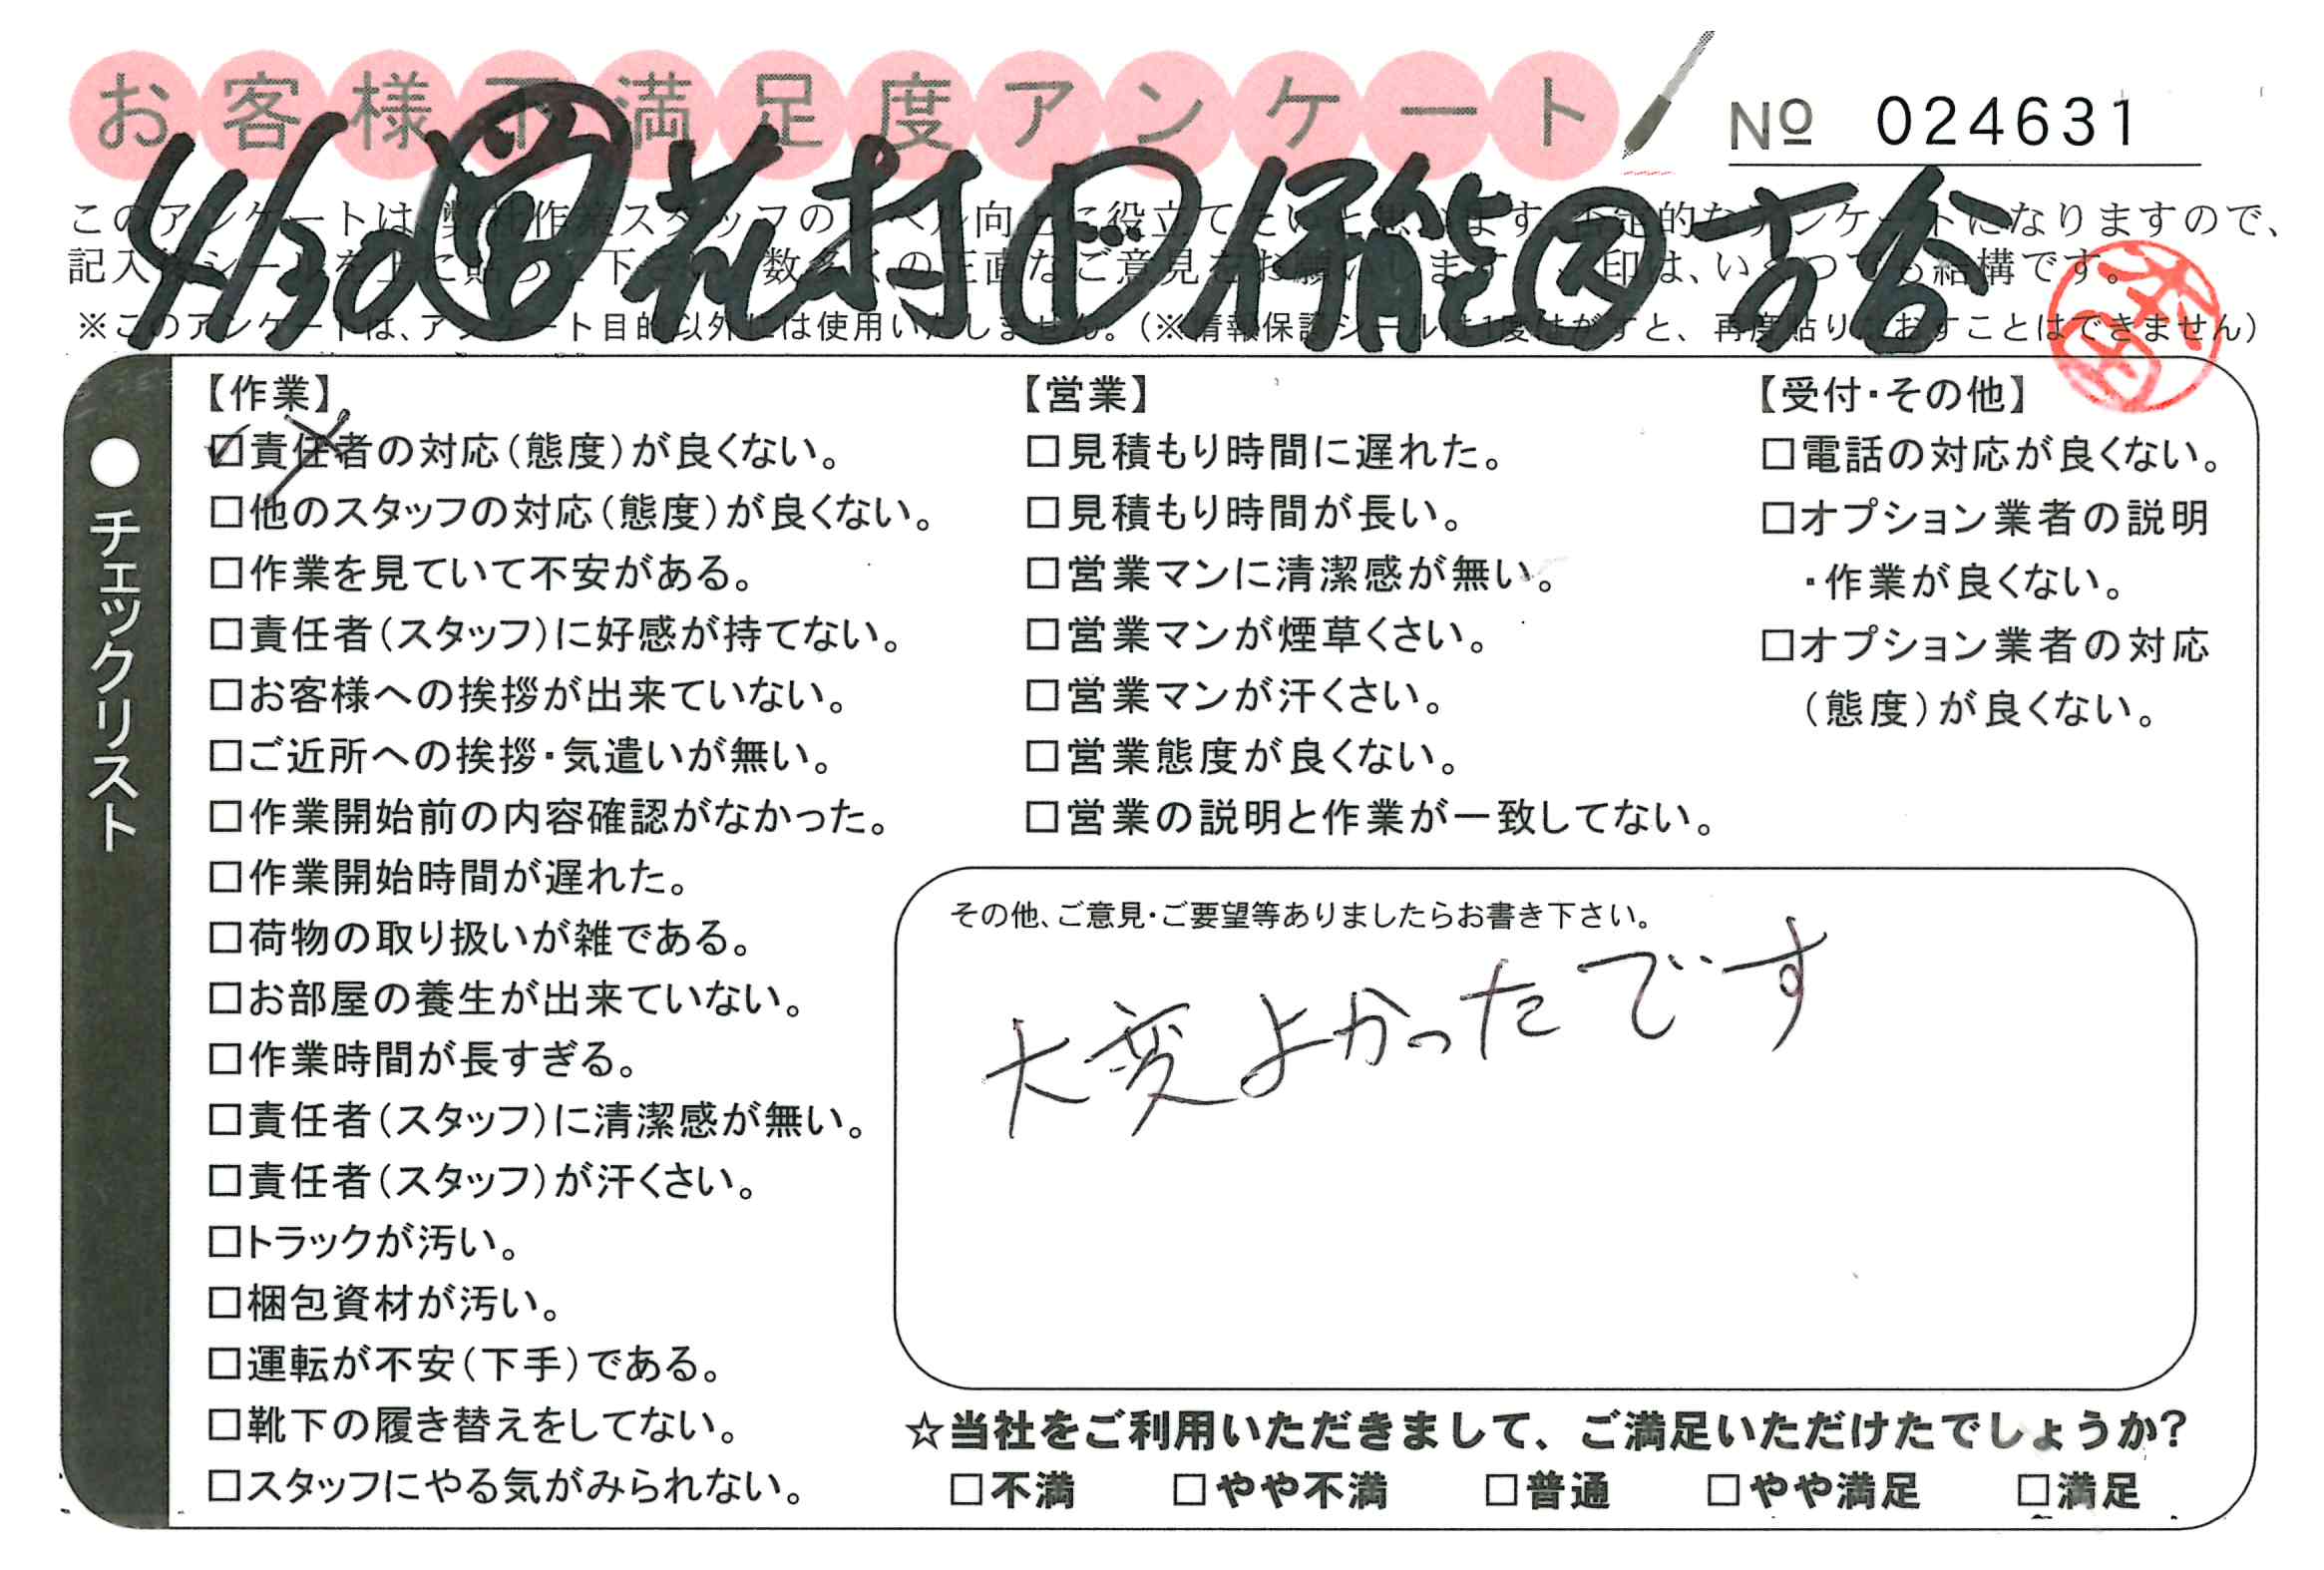 お客様不満足度アンケート
№ 024631
4/30 花村 伊能 古谷
記入
※このアンケートは、アンケート目的以外には使用いたしません。(※情報保護シールは1度はがすと、再度貼りなおすことはできません)
●チェックリスト
【作業】
☑責任者の対応(態度)が良くない。
□他のスタッフの対応(態度)が良くない。
□作業を見ていて不安がある。
□責任者(スタッフ)に好感が持てない。
□お客様への挨拶が出来ていない。
□ご近所への挨拶・気遣いが無い。
□作業開始前の内容確認がなかった。
□作業開始時間が遅れた。
□荷物の取り扱いが雑である。
□お部屋の養生が出来ていない。
□作業時間が長すぎる。
□責任者(スタッフ)に清潔感が無い。
□責任者(スタッフ)が汗くさい。
□トラックが汚い。
□梱包資材が汚い。
□運転が不安(下手)である。
□靴下の履き替えをしてない。
□スタッフにやる気がみられない。
【営業】
□見積もり時間に遅れた。
□見積もり時間が長い。
□営業マンに清潔感が無い。
□営業マンが煙草くさい。
□営業マンが汗くさい。
□営業態度が良くない。
□営業の説明と作業が一致してない。
【受付・その他】
□電話の対応が良くない。
□オプション業者の説明
・作業が良くない。
□オプション業者の対応
(態度)が良くない。
その他、ご意見・ご要望等ありましたらお書き下さい。
大変よかったです
☆当社をご利用いただきまして、ご満足いただけたでしょうか?
□不満 □やや不満 □普通 □やや満足 □満足